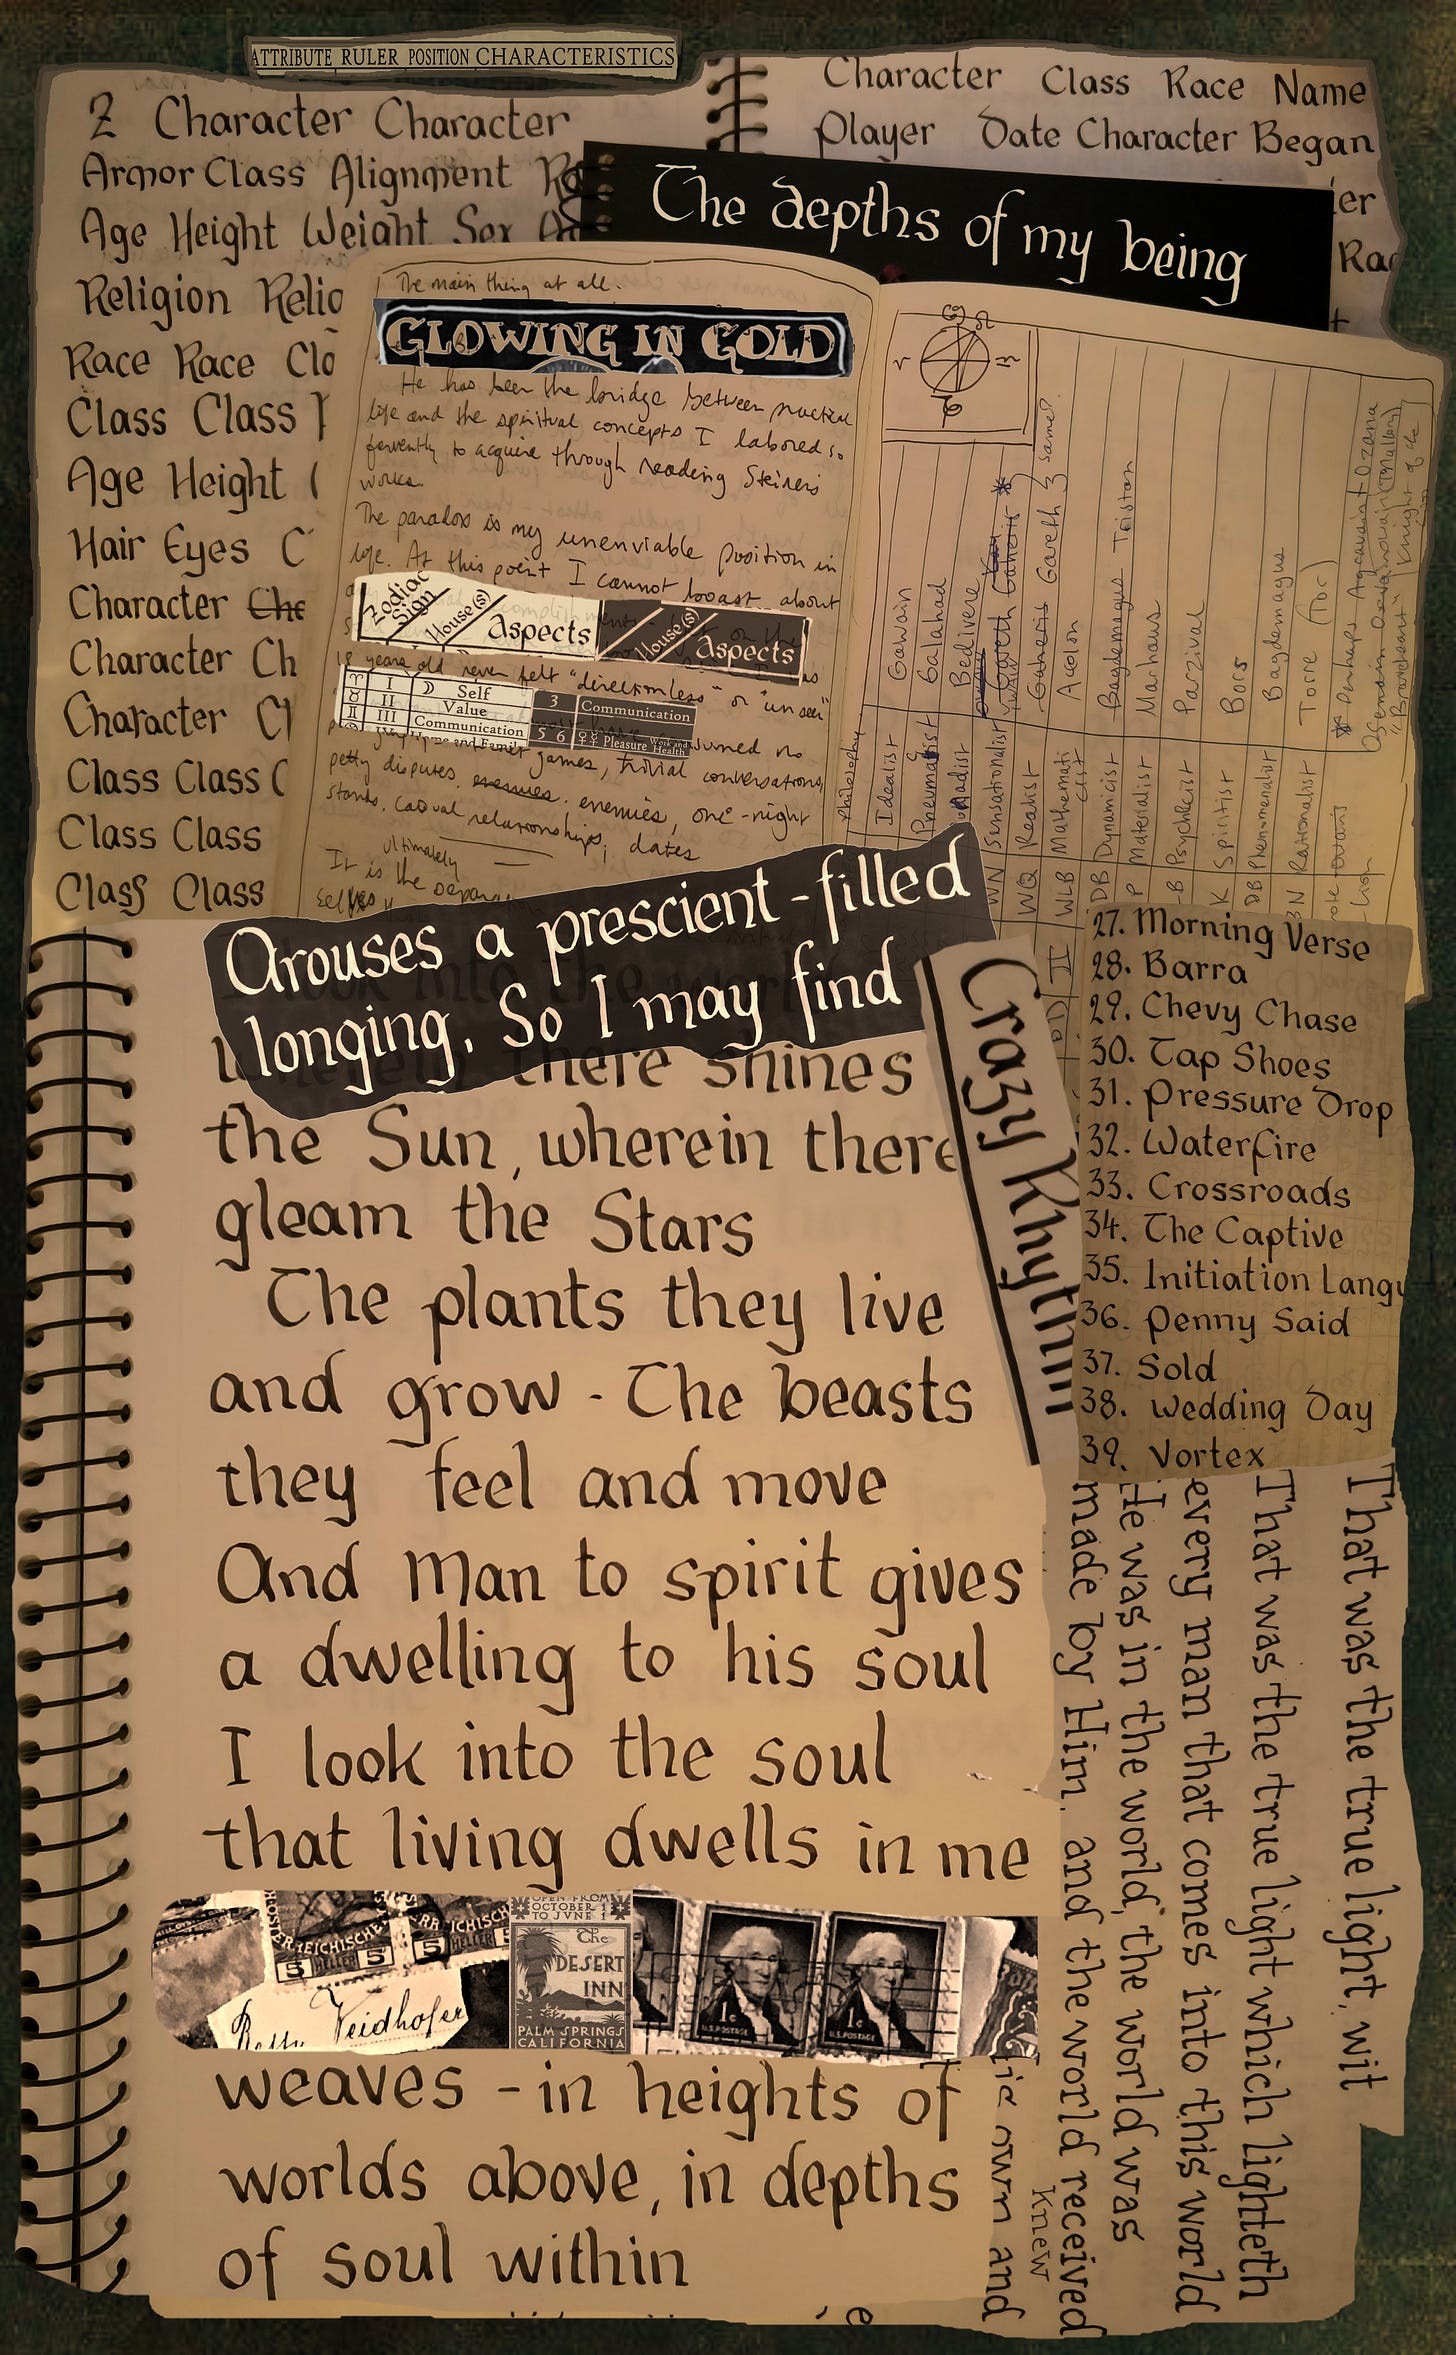 ATTRIBUTE RULER POSITION CHARACTERISTICS
2 Character Character
Armor Class Alignment
Age Height Weight Sex
Religion Relig
Race Race Cla
Class Class
Age Height
Hair Eyes C
Character Che
Character Ch
Character Cl
Class Class C
Class Class
Class Class
Character Class Race Name
Player Date Character Began
The depths of my being
The main thing at all.
GLOWING IN GOLD
He has been the bridge between practical
life and the spiritual concepts I labored so
fervently to acquire through reading Steiner's
works.
The paradox is my unenviable position in
life. At this point I cannot boast about
Zodiac Sign House(s) Aspects House(s) Aspects
18 years old never felt "directionless" or "unseen"
I Self
II Value
III Communication
Home and Family
3 Communication
5 6 Pleasure Work and Health
games, trivial conversations,
petty disputes, enemies, enemies, one-night
stands, casual relationships, dates
ultimately
It is the
same?
Gawain
Galahad
Bedivere
Gareth Gaheris *
Gaheris Gareth
Accolon
Bagdemagus Tristan
Marhaus
Parzival
Bors
Bagdemagus
Torre (Tor)
* Perhaps Agravain + Ozana
Philosophy
Idealist
Pneumatist
Monadist
Sensationalist
Realist
Mathematicist
Dynamicist
Materialist
Psychicist
Spiritist
Phenomenalist
Rationalist
WN
WQ
WLB
DB
P
B
K
DB
BN
Arouses a prescient-filled
longing, So I may find
there shines
the Sun, wherein there
gleam the Stars
The plants they live
and grow - The beasts
they feel and move
And Man to spirit gives
a dwelling to his soul
I look into the soul
that living dwells in me
Crazy Rhythm
27. Morning Verse
28. Barra
29. Chevy Chase
30. Tap Shoes
31. Pressure Drop
32. Waterfire
33. Crossroads
34. The Captive
35. Initiation Langu
36. Penny Said
37. Sold
38. Wedding Day
39. Vortex
That was the true light, wit
That was the true light which lighteth
every man that comes into this world
He was in the world, the world was
made by Him, and the world received
knew
own and
5 HELLER 5
5 HELLER
Veidhofer
OPEN FROM
OCTOBER 1
TO JUNE 1
The
DESERT
INN
PALM SPRINGS
CALIFORNIA
1¢
U.S. POSTAGE
1¢
U.S. POSTAGE
weaves - in heights of
worlds above, in depths
of soul within